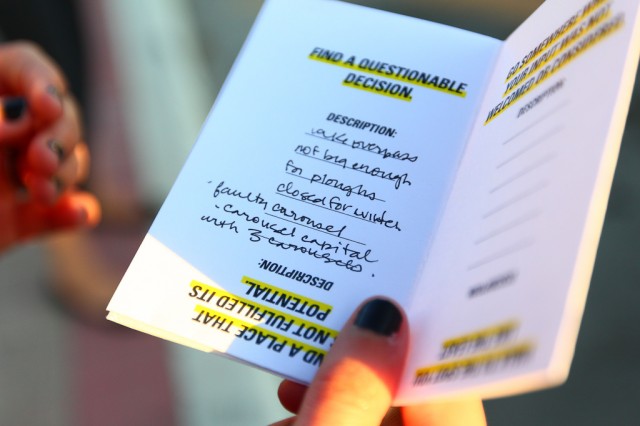 FIND A QUESTIONABLE
DECISION.
DESCRIPTION:
overpass
not big enough
for ploughs
closed for winter
· faulty carousel
· carousel capital
with 3 carousels.
A PLACE THAT
NOT FULFILLED ITS
POTENTIAL.
DESCRIPTION:
GO SOMEWHERE
YOUR INPUT WAS NOT
WELCOMED OR CONSIDERED.
DESCRIPTION: